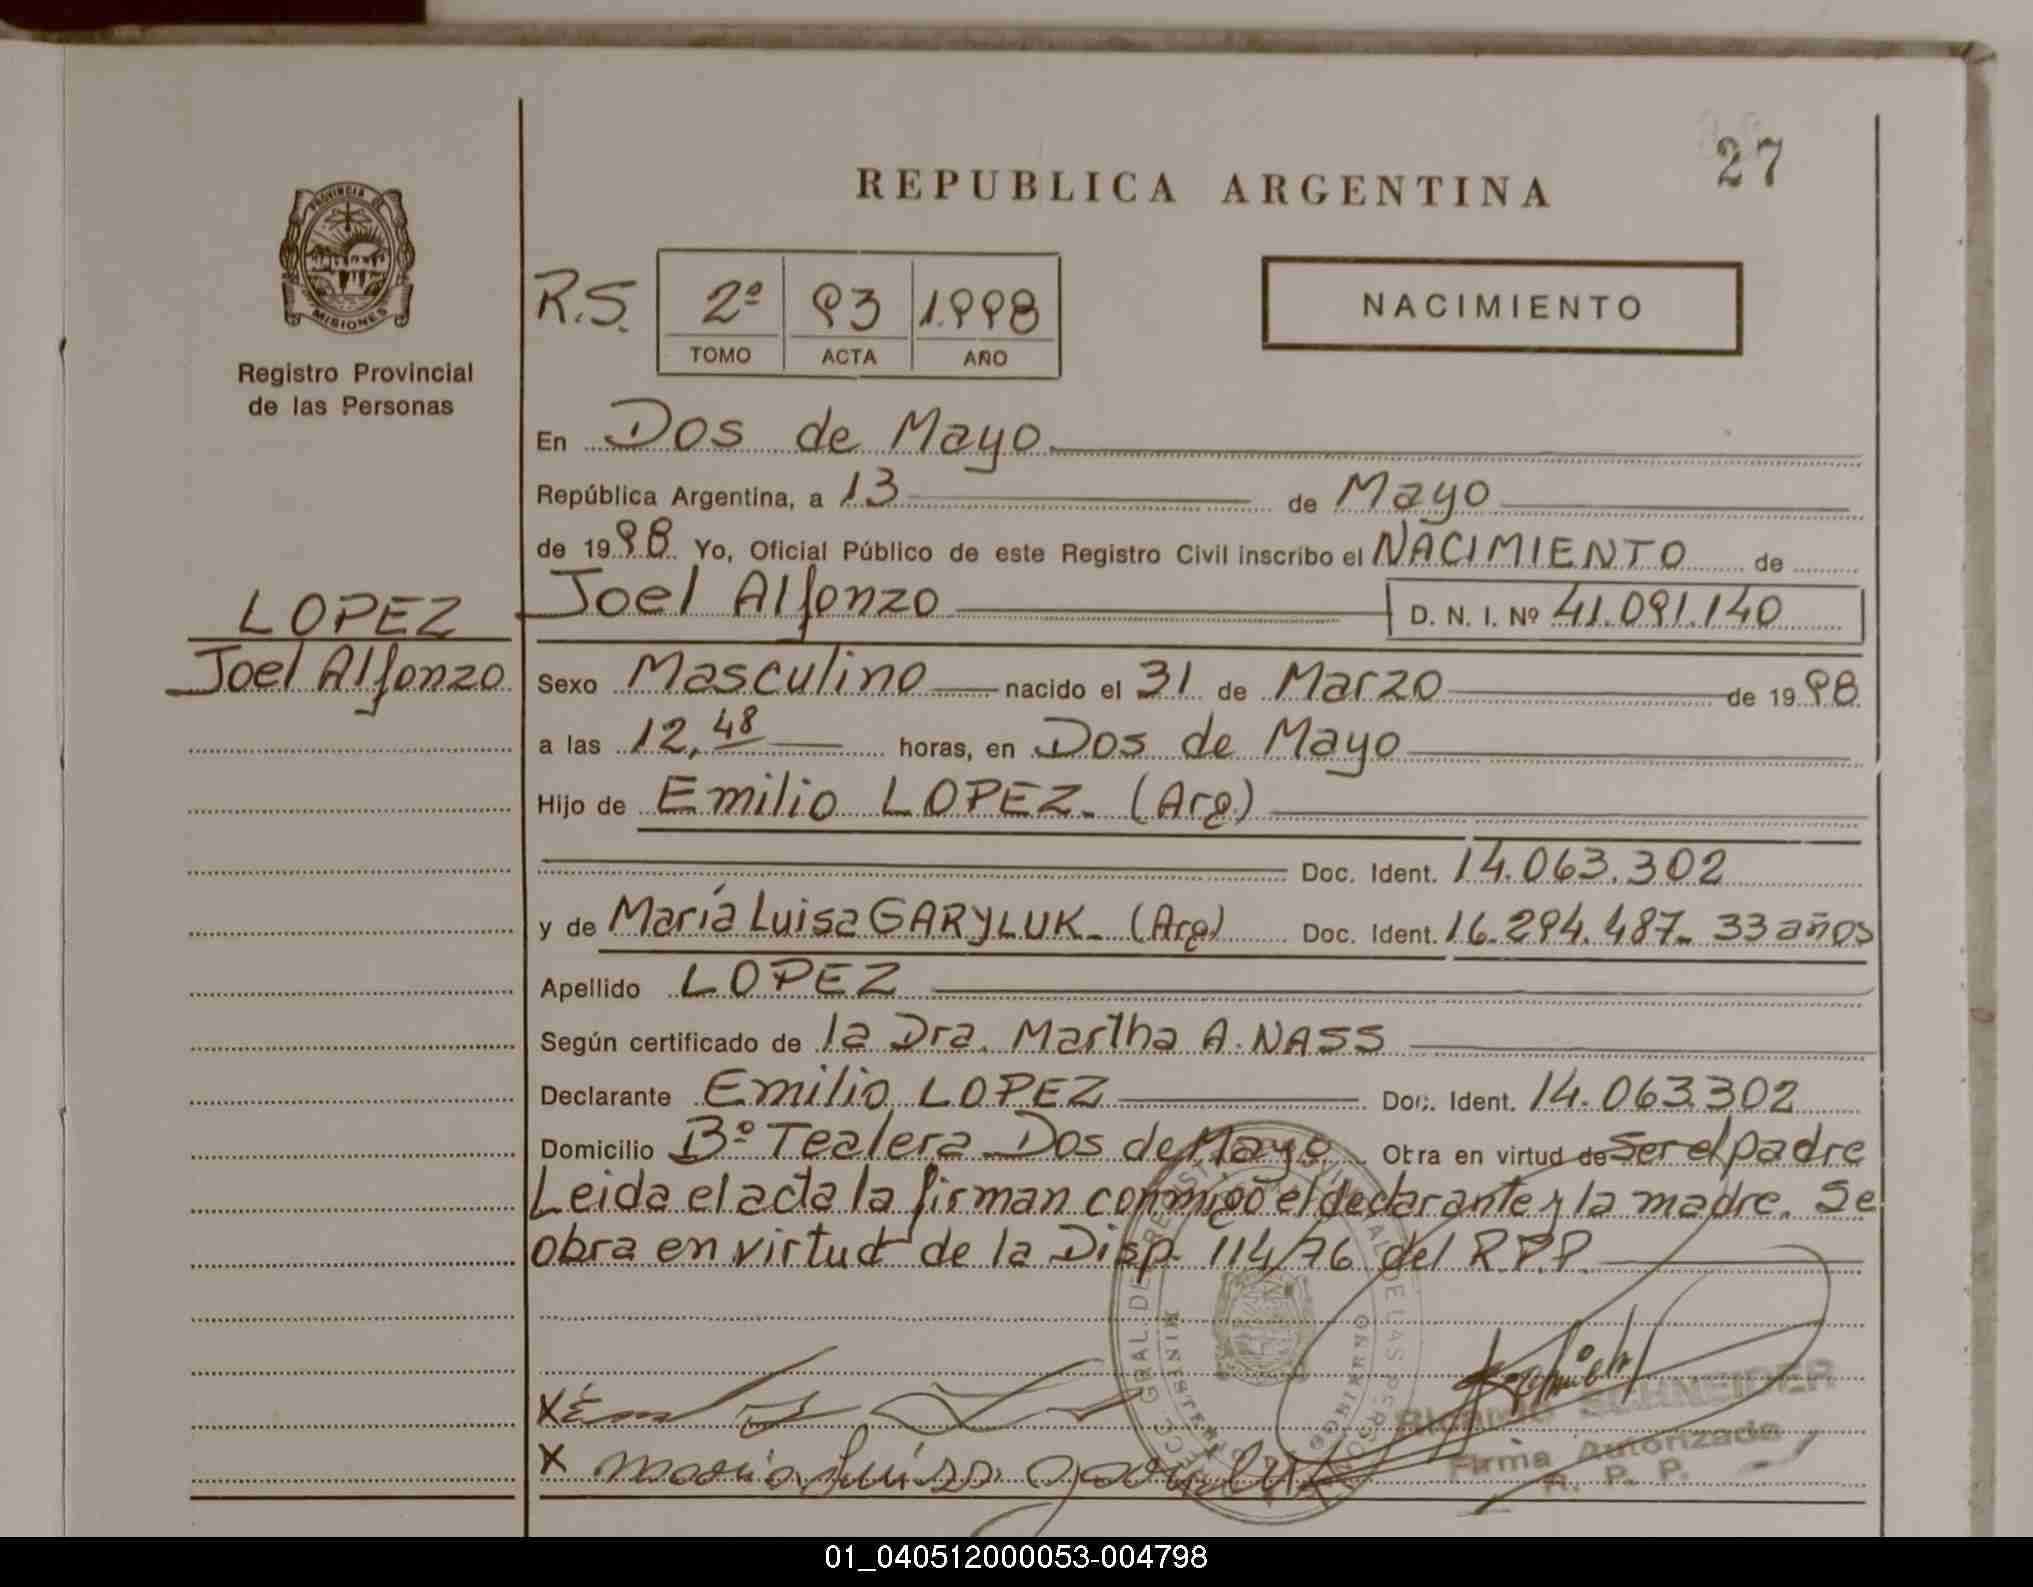 27
REPUBLICA ARGENTINA
PROVINCIA DE
MISIONES
Registro Provincial
de las Personas
R.S. 2º 93 1.998
TOMO ACTA AÑO
NACIMIENTO
En Dos de Mayo
República Argentina, a 13 de Mayo
de 1998 Yo, Oficial Público de este Registro Civil inscribo el NACIMIENTO de
LOPEZ
Joel Alfonzo
Joel Alfonzo D. N. I. Nº 41.091.140
Sexo Masculino nacido el 31 de Marzo de 1998
a las 12,48 horas, en Dos de Mayo
Hijo de Emilio LOPEZ.- (Arg)
Doc. Ident. 14.063.302
y de María Luisa GARYLUK.- (Arg) Doc. Ident. 16.294.487.- 33 años
Apellido LOPEZ
Según certificado de la Dra. Martha A. NASS
Declarante Emilio LOPEZ Doc. Ident. 14.063.302
Domicilio Bº Tealera Dos de Mayo Obra en virtud de Ser el padre
Leida el acta la firman conmigo el declarante y la madre. Se
obra en virtud de la Disp. 114/76 del R.P.P.
X
SCHNEIDER
Firma Autorizada
R. P. P.
X Maria Luisa Garyluk
01_040512000053-004798